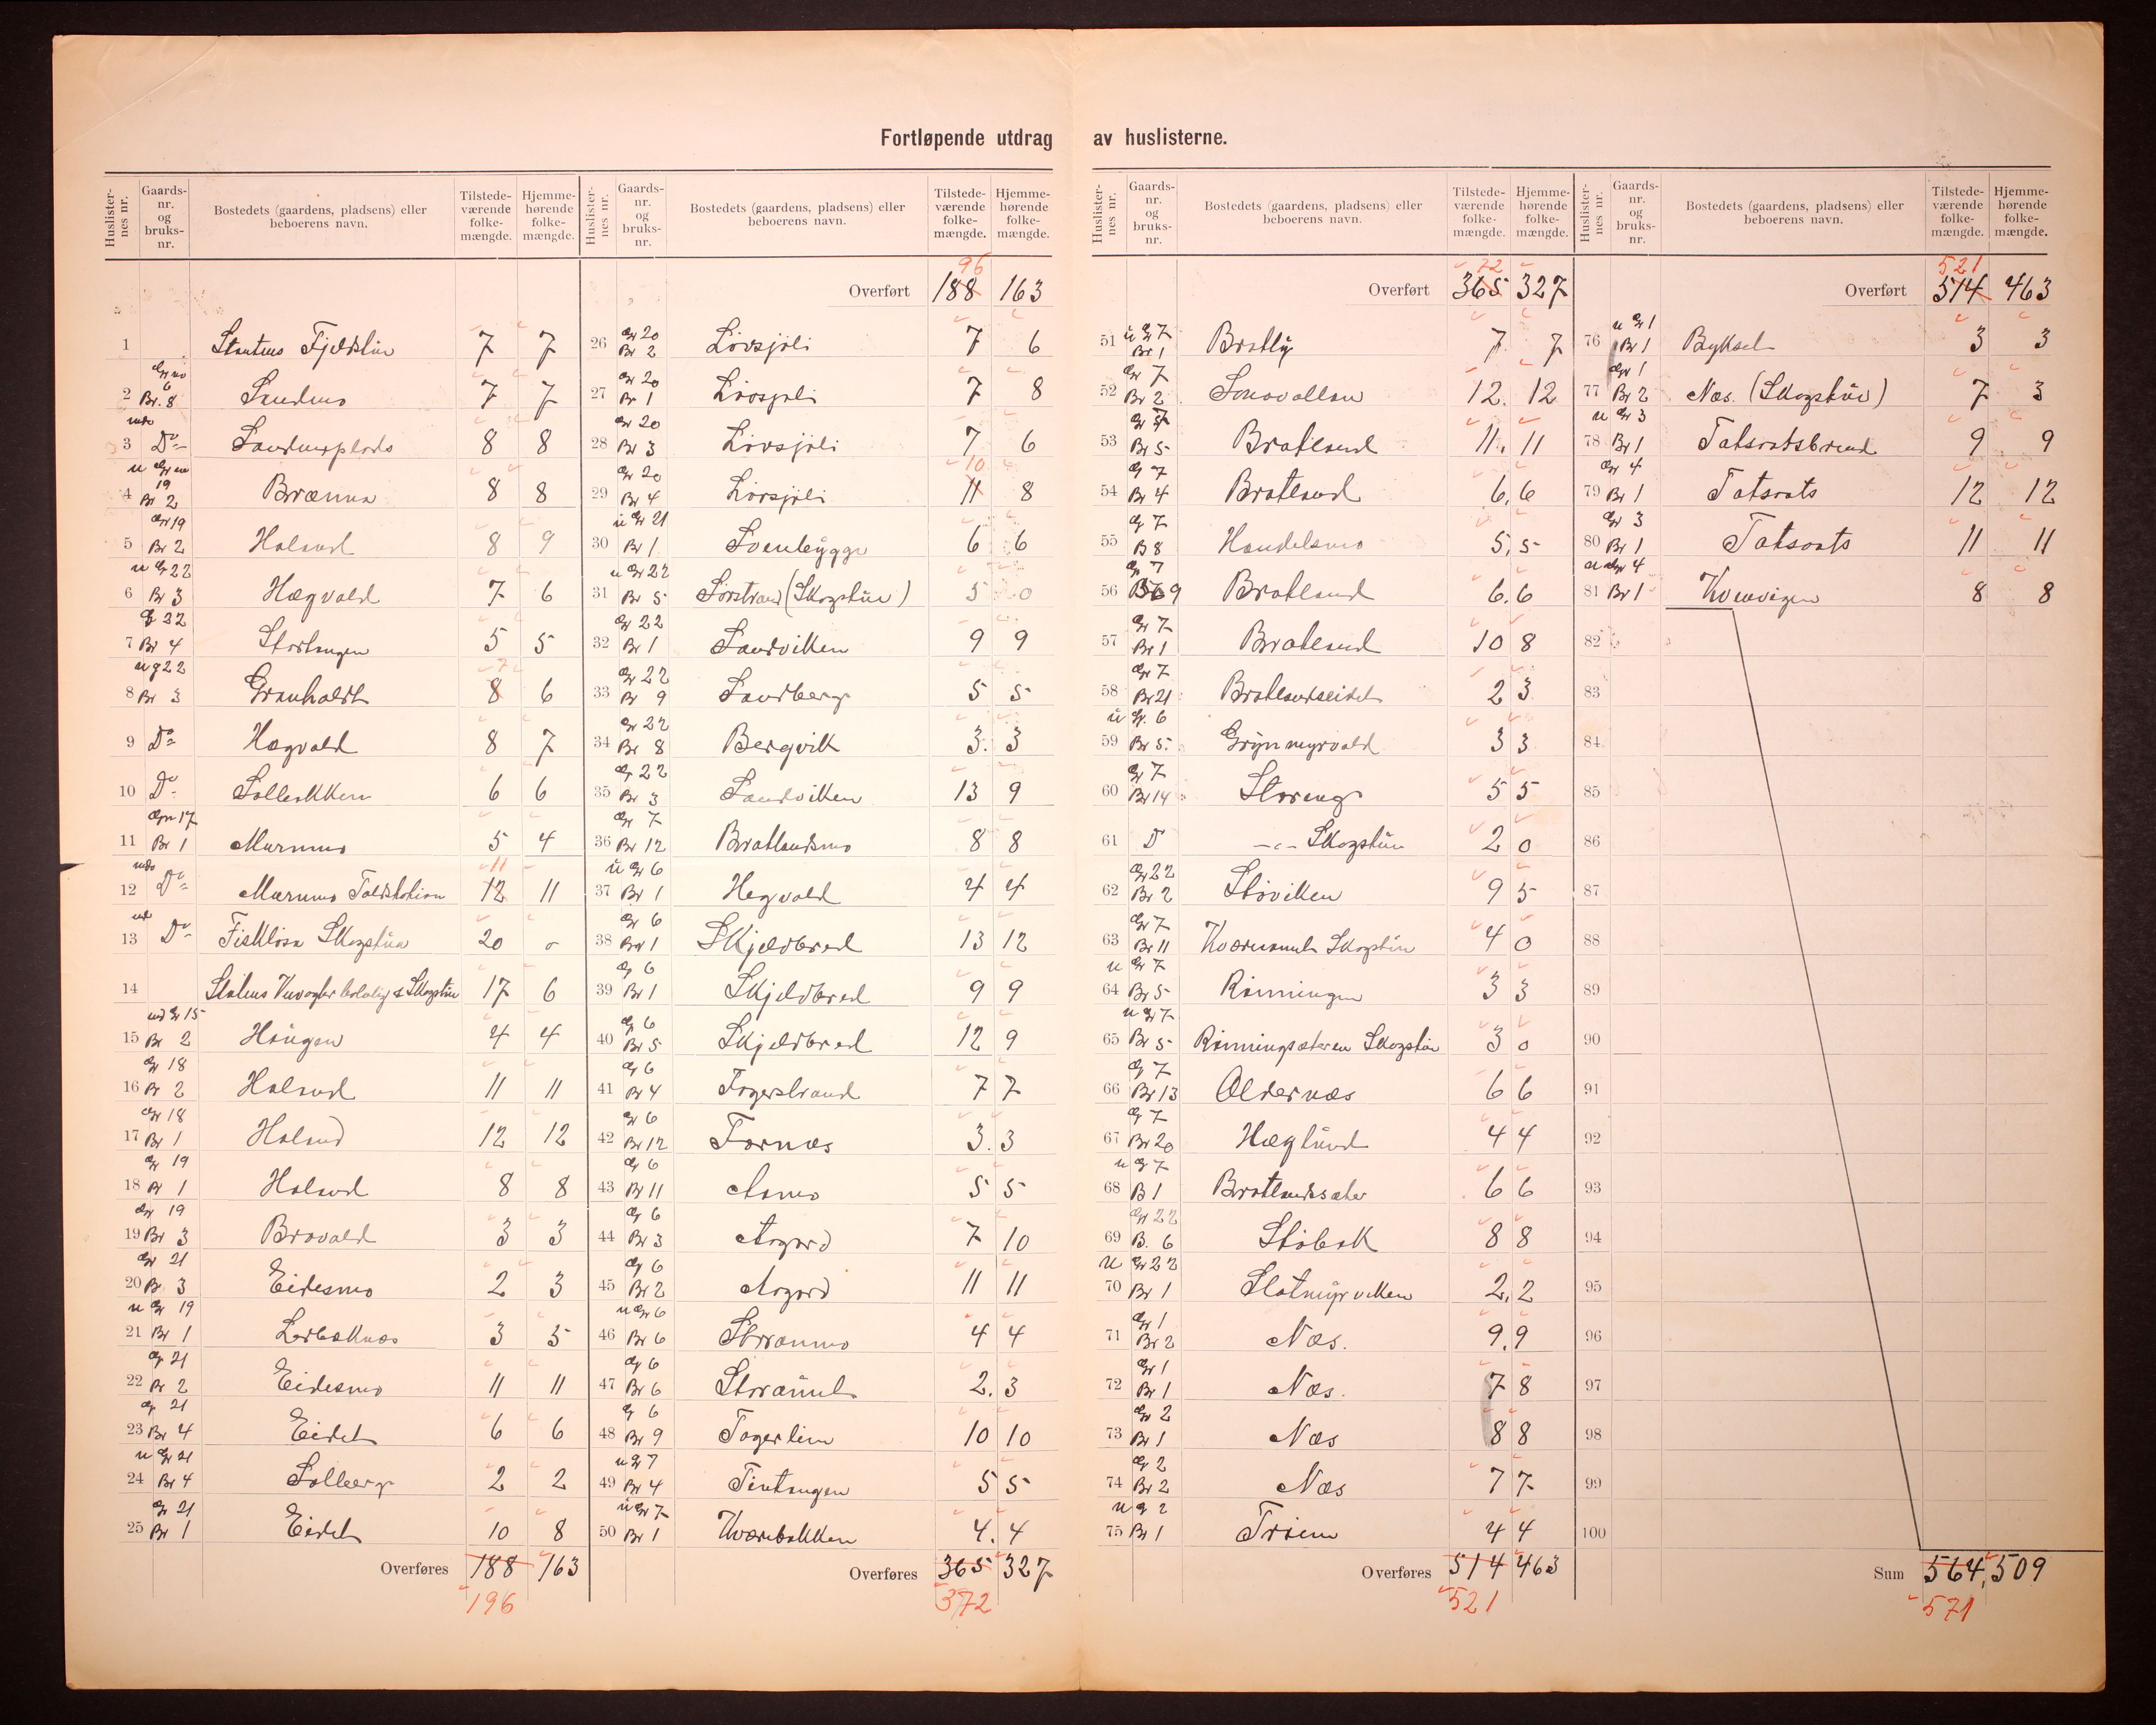 Fortløpende utdrag av huslisterne.
Huslister-nes nr. Gaards-nr. og bruks-nr. Bostedets (gaardens, pladsens) eller beboerens navn. Tilstede-værende folke-mængde. Hjemme-hørende folke-mængde.
1 Statens Fjeldstue 7 7
2 Gr no 6 Br. 8 Sandmo 7 7
3 Do Sandmoplads 8 8
4 u Gr no 19 Br 2 Brænna 8 8
5 Gr 19 Br 2 Holand 8 9
6 u Gr 22 Br 3 Hægvold 7 6
7 G 22 Br 4 Stortangen 5 5
8 u G 22 Br 3 Granholdt 8 7 6
9 Do Hægvold 8 7
10 Do Solbakken 6 6
11 Gr 17 Br 1 Murumo 5 4
12 Do Murumo Toldstation 12 11 11
13 Do Fiskløsa Skogstue 20 0
14 Statens Skogstue 17 6
15 und Gr 15 Br 2 Haugen 4 4
16 Gr 18 Br 2 Holand 11 11
17 Gr 18 Br 1 Holand 12 12
18 Gr 19 Br 1 Holand 8 8
19 Gr 19 Br 3 Brovold 3 3
20 Gr 21 Br 3 Eidesmo 2 3
21 u Gr 19 Br 1 Lerbæknæs 3 5
22 Gr 21 Br 2 Eidesmo 11 11
23 Gr 21 Br 4 Eidet 6 6
24 u Gr 21 Br 4 Solberg 2 2
25 Gr 21 Br 1 Eidet 10 8
Overføres 188 163
196
Huslister-nes nr. Gaards-nr. og bruks-nr. Bostedets (gaardens, pladsens) eller beboerens navn. Tilstede-værende folke-mængde. Hjemme-hørende folke-mængde.
96
Overført 188 163
26 Gr 20 Br 2 Løvsjøli 7 6
27 Gr 20 Br 1 Løvsjøli 7 8
28 Gr 20 Br 3 Løvsjøli 7 6
29 Gr 20 Br 4 Løvsjøli 11 10 8
30 u Gr 21 Br 1 Svenbygge 6 6
31 u Gr 22 Br 5 Sørstrand (Skogstue) 5 0
32 Gr 22 Br 1 Sandviken 9 9
33 Gr 22 Br 9 Sandberg 5 5
34 Gr 22 Br 8 Bergvik 3. 3
35 Gr 22 Br 3 Sandviken 13 9
36 Gr 7 Br 12 Bratlandsmo 8 8
37 u Gr 6 Br 1 Hegvold 4 4
38 Gr 6 Br 1 Skjeldbred 13 12
39 G 6 Br 1 Skjeldbred 9 9
40 G 6 Br 5 Skjeldbred 12 9
41 G 6 Br 4 Fagerstrand 7 7
42 Gr 6 Br 12 Fornæs 3. 3
43 G 6 Br 11 Aamo 5 5
44 G 6 Br 3 Aagard 7 10
45 G 6 Br 2 Aagard 11 11
46 u Gr 6 Br 6 Storaanmo 4 4
47 G 6 Br 6 2. 3
48 G 6 Br 9 Fagerlien 10 10
49 u G 7 Br 4 5 5
50 u Gr 7 Br 1 Kværnbakken 4. 4
Overføres 365 327
372
Huslister-nes nr. Gaards-nr. og bruks-nr. Bostedets (gaardens, pladsens) eller beboerens navn. Tilstede-værende folke-mængde. Hjemme-hørende folke-mængde.
72
Overført 365 327
51 u G 7 Br 1 Bratly 7 7
52 Gr 7 Br 2 12. 12
53 G 7 Br 5 Bratland 11. 11
54 G 7 Br 4 Bratland 6. 6
55 G 7 B 8 Handelsmo 5. 5
56 G 7 9 Bratland 6. 6
57 Gr 7 Br 1 Bratland 10 8
58 Gr 7 Br 21 Bratlandseidet 2 3
59 u Gr. 6 Br 5. Grynmyrvold 3 3
60 Gr 7 Br 14 Storeng 5 5
61 D —"— Skogstue 2 0
62 Gr 22 Br 2 Støviken 9 5
63 Gr 7 Br 11 Skogstue 4 0
64 u Gr 7 Br 5 Rønningen 3 3
65 u Gr 7 Br 5 Rønningsæteren Skogstue 3 0
66 G 7 Br 13 Oldernæs 6 6
67 G 7 Br 20 Hæglund 4 4
68 u G 7 B 1 Bratlandssæter 6 6
69 Gr 22 B. 6 Støbæk 8 8
70 u Gr 22 Br 1 Slotmyrviken 2. 2
71 Gr 1 Br 2 Næs. 9. 9
72 Gr 1 Br 1 Næs. 7 8
73 Gr 2 Br 1 Næs 8 8
74 G 2 Br 2 Næs 7 7
75 u G 2 Br 1 Trøen 4 4
Overføres 514 463
521
Huslister-nes nr. Gaards-nr. og bruks-nr. Bostedets (gaardens, pladsens) eller beboerens navn. Tilstede-værende folke-mængde. Hjemme-hørende folke-mængde.
521
Overført 514 463
76 u G 1 Br 1 Byksel 3 3
77 Gr 1 Br 2 Næs. (Skogstue) 7 3
78 u Gr 3 Br 1 Totsaatsbrend 9 9
79 Gr 4 Br 1 Totsaats 12 12
80 Gr 3 Br 1 Totsaats 11 11
81 u Gr 4 Br 1 Kvenvigen 8 8
82
83
84
85
86
87
88
89
90
91
92
93
94
95
96
97
98
99
100
Sum 564, 509
571